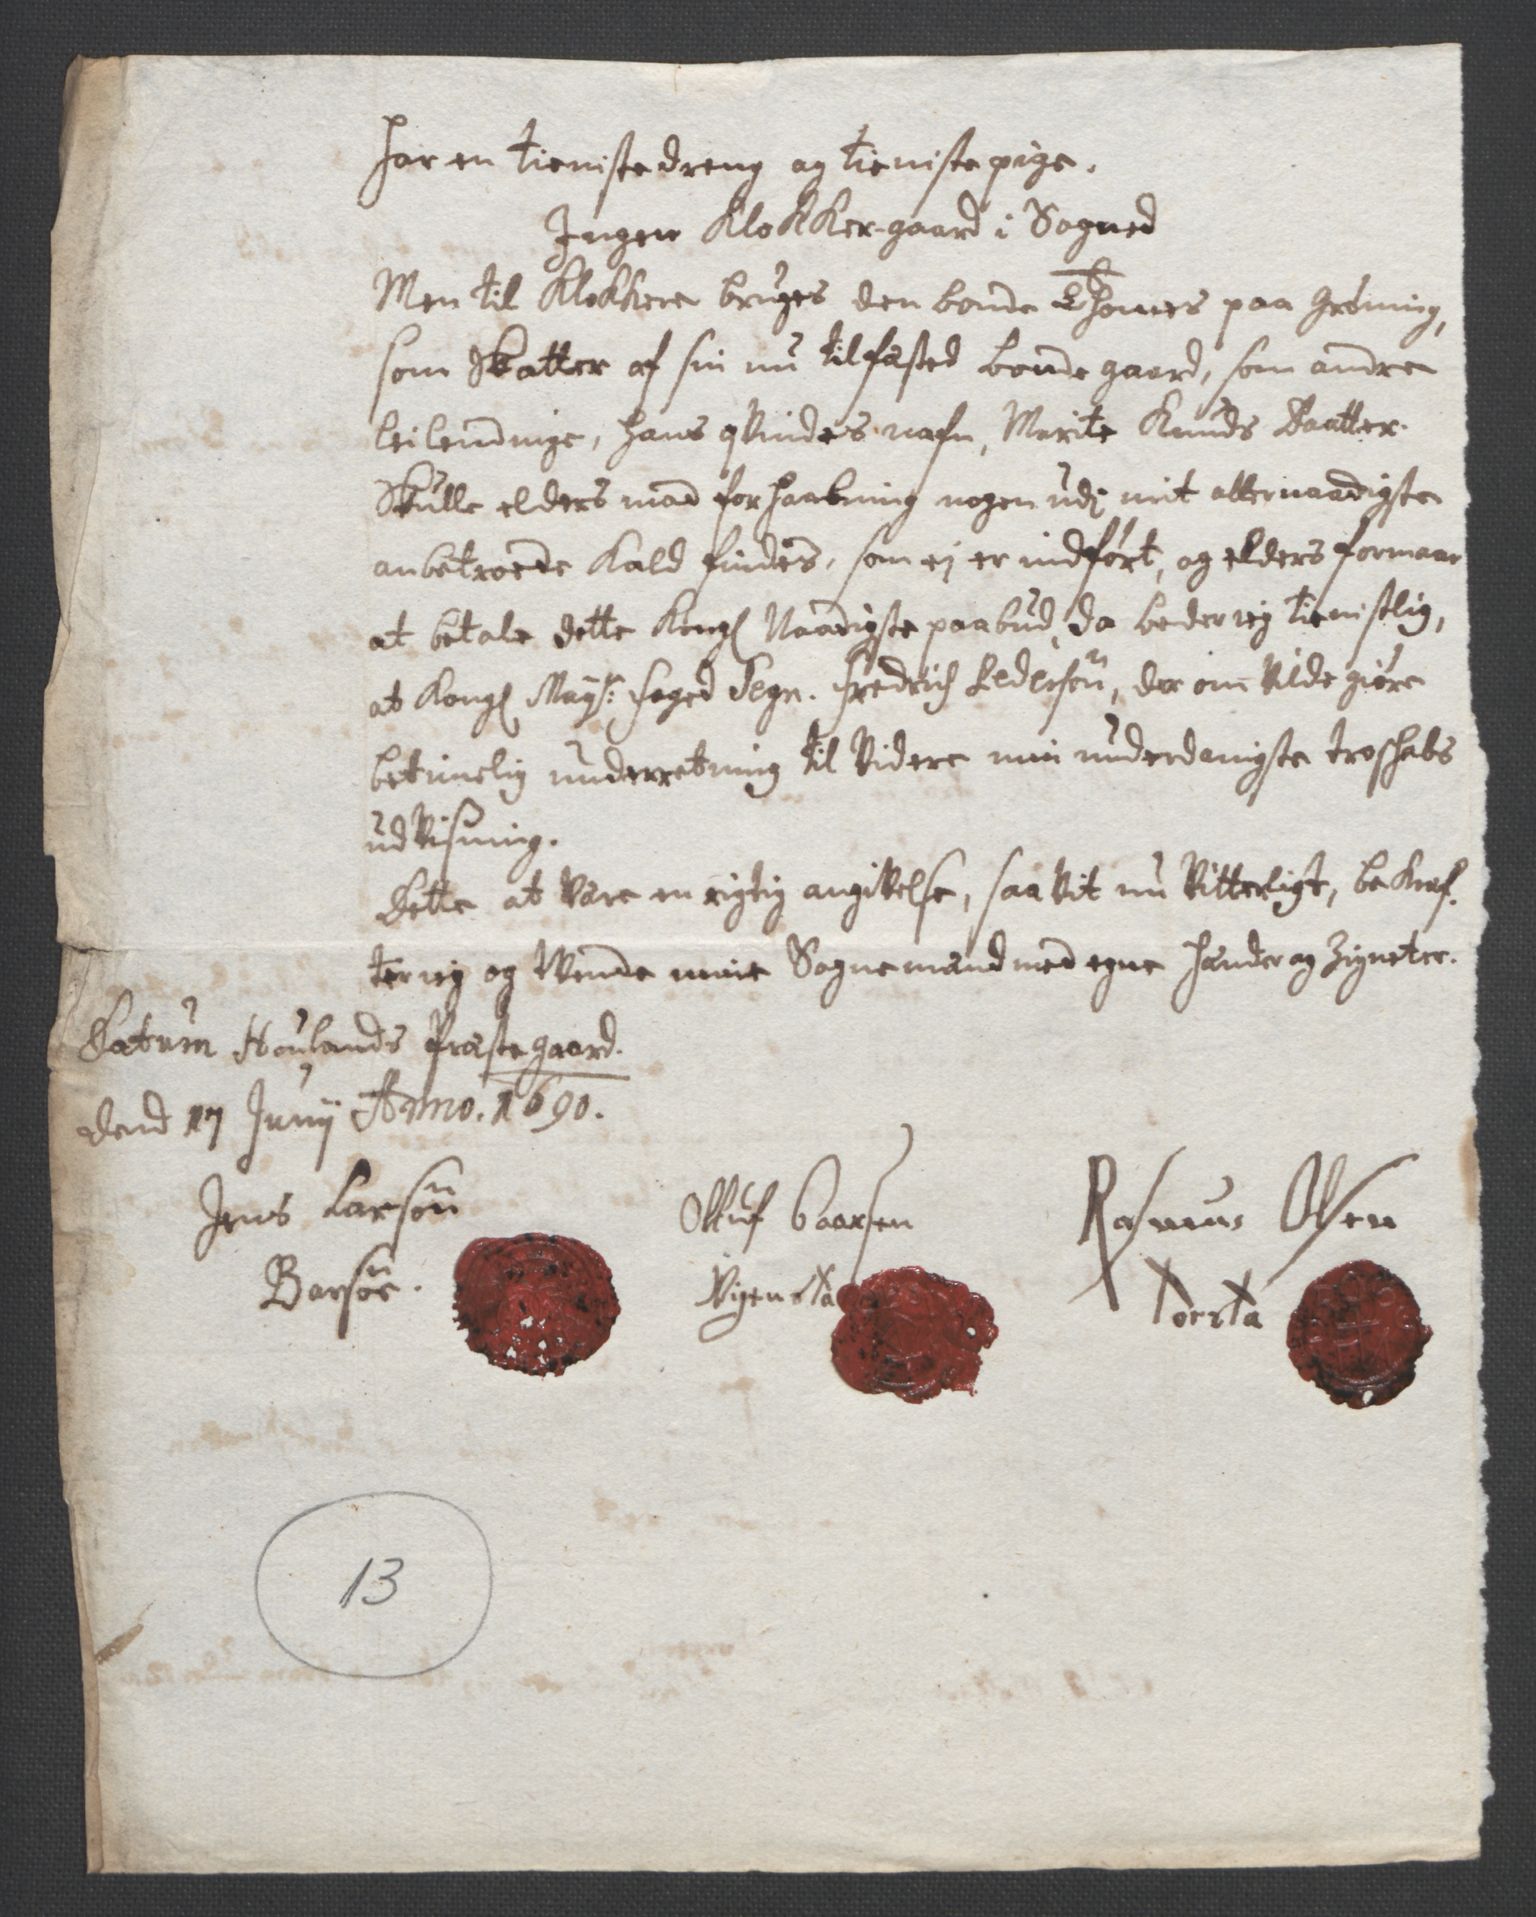 har en tieniste dreng og tieniste pige.
Ingen KloKKer-gaard i Sogned
Men til KloKKere bruges den bonde Thomes paa Gröning,
som Skatter af sin nu tilfæsted bonde gaard, som andre
leilendinge, hans qVindes nafn, Marite Knuds Daatter.
Skulle elders mod forhaabning nogen udj mit allernaadigste
anbetroede Kald findes, som ej er indfört, og elders formaar
at betale dette Kongl Naadigste paabud, da beder ieg tienistlig,
at Kongl Mayst: foged Segr. Fredrich Pedersön, der om Vilde giöre
betimelig underretning til Videre min underdanigste troschabs
udVisning.
Dette at Være en rigtig angiVelse, saa Vit nu Vitterligt, beKræf-
ter ieg og tvende mine Sognemænd med egne hænder og Zigneter.
Datum Höulands Præstegaard.
dend 17 Junij Anno. 1690.
Jens Larsön
Barsöe.
Olluf Gaarsen
Vigenstå
Rasmus Olsen
Voersta
13